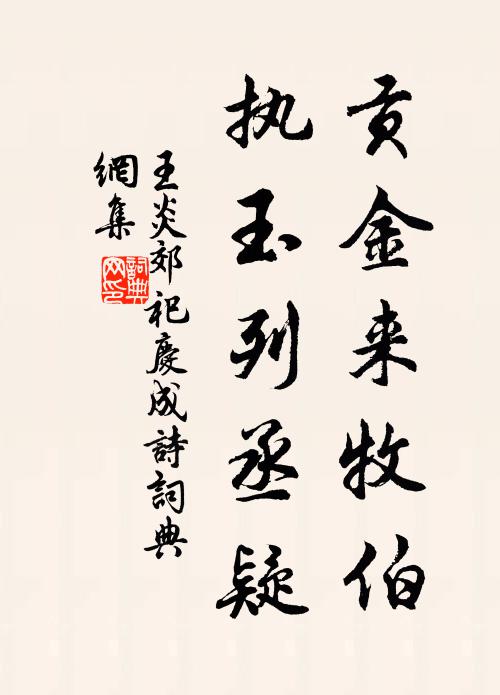 贡金来牧伯
执玉列丞疑
王炎郊祀慶成詩詞典
網集
詞典
网印